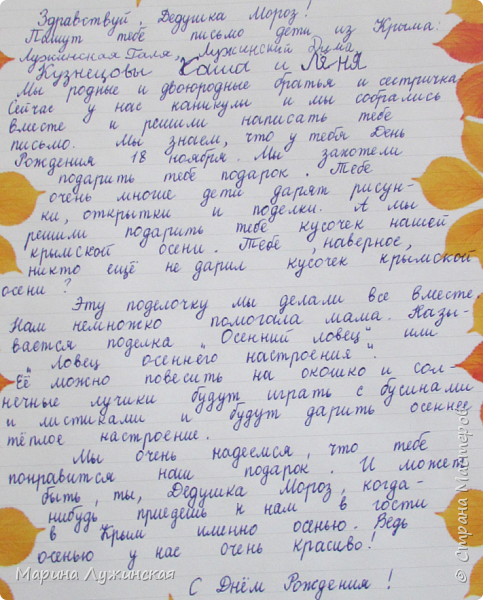 Здравствуй, Дедушка Мороз!
Пишут тебе письмо дети из Крыма:
Лужинская Галя, Лужинский Дима,
Кузнецовы Саша и Ляня
Мы родные и двоюродные братья и сестричка.
Сейчас у нас каникули и мы собрались
вместе и решили написать тебе
письмо. Мы знаем, что у тебя День
Рождения 18 ноября. Мы захотели
подарить тебе подарок. Тебе
очень многие дети дарят рисун-
ки, открытки и поделки. А мы
решили подарить тебе кусочек нашей
крымской осени. Тебе, наверное,
никто ещё не дарил кусочек крымской
осени?
Эту поделочку мы делали все вместе.
Нам немножко помогала мама. Назы-
вается поделка „Осенний ловец" или
„Ловец осеннего настроения".
Её можно повесить на окошко и сол-
нечные лучики будут играть с бусинами
и листиками и будут дарить осеннее
тёплое настроение.
Мы очень надеемся, что тебе
понравится наш подарок. И может
быть, ты, Дедушка Мороз, когда-
нибудь приедешь к нам в гости
в Крым именно осенью. Ведь
осенью у нас очень красиво!
С Днём Рождения!
Марина Лужинская
© Страна Мастеров